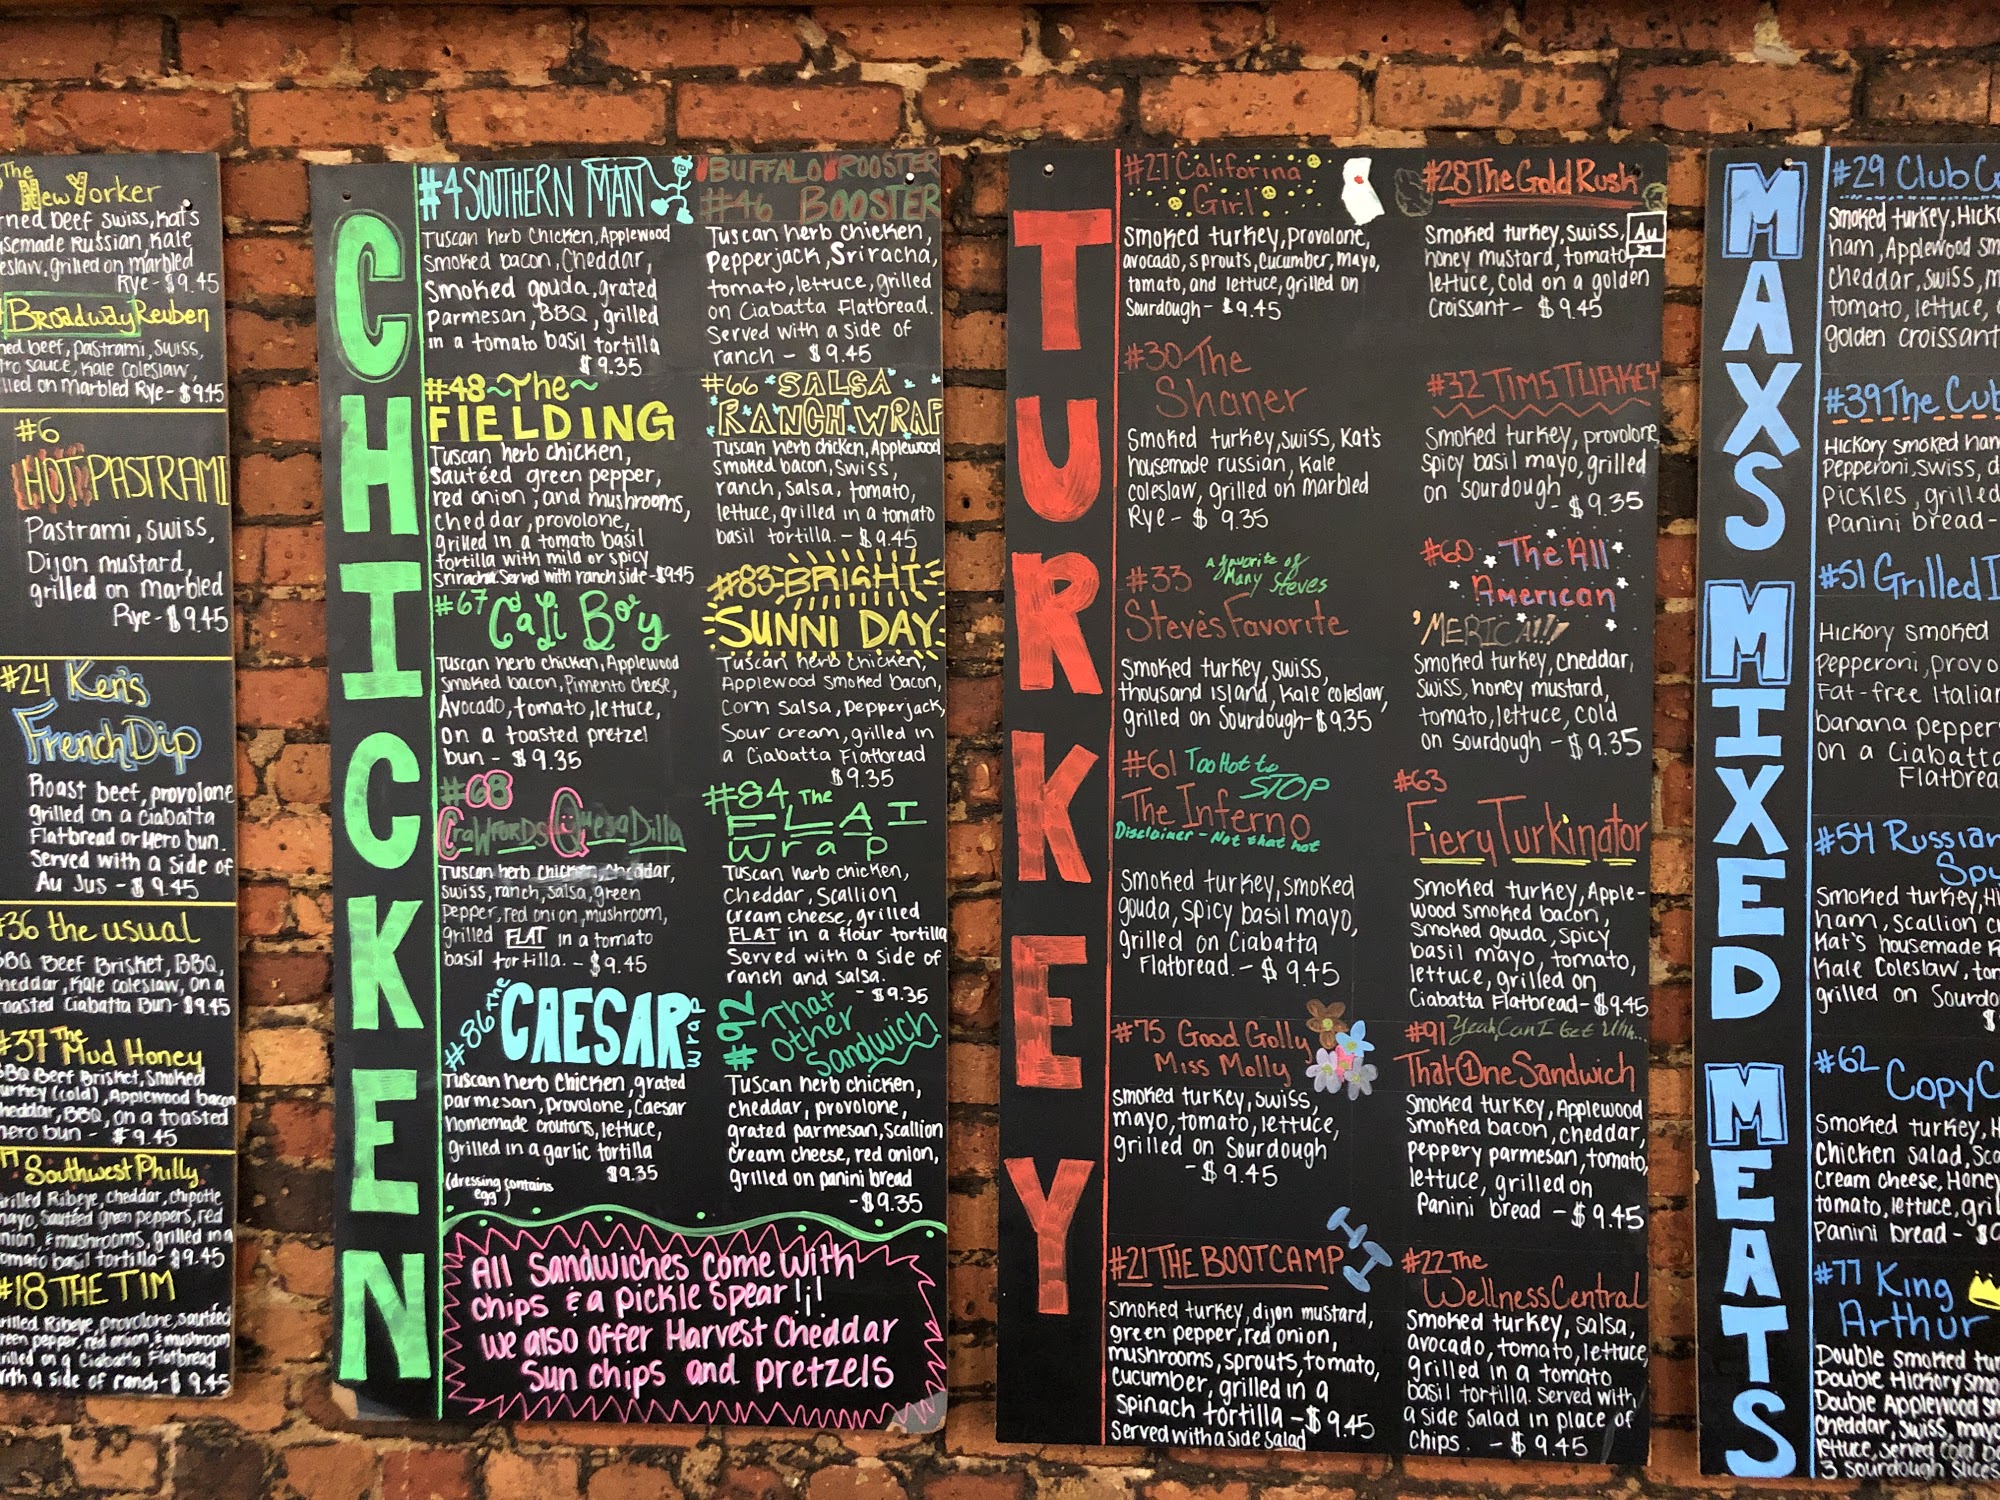 The
New Yorker
Beef, Swiss, Kat's
Russian, Kale
grilled on marbled
Rye - $9.45
Broadway Reuben
beef, pastrami, Swiss,
sauce, Kale Coleslaw,
on Marbled Rye - $9.45
#6
HOT PASTRAMI
Pastrami, Swiss,
Dijon mustard,
grilled on marbled
Rye - $9.45
#24 Ken's
French Dip
Roast beef, provolone
grilled on a Ciabatta
Flatbread or Hero bun.
Served with a side of
Au Jus - $9.45
#36 the usual
BBQ Beef Brisket, BBQ,
Kale coleslaw, on a
Ciabatta Bun - $9.45
#37 The Mud Honey
BBQ Beef Brisket, Smoked
(cold), Applewood bacon
BBQ, on a toasted
bun - $9.45
Southwest Philly
Ribeye, cheddar, chipotle
Sautéed green peppers, red
& mushrooms, grilled in a
basil tortilla - $9.45
#18 THE TIM
Ribeye, provolone, sautéed
pepper, red onion, & mushroom
on a Ciabatta Flatbread
with a side of ranch - $9.45
CHICKEN
#4 SOUTHERN MAN
Tuscan herb Chicken, Applewood
Smoked bacon, Cheddar,
Smoked gouda, grated
parmesan, BBQ, grilled
in a tomato basil tortilla
$9.35
#48 ~ The ~
FIELDING
Tuscan herb chicken,
Sautéed green pepper,
red onion, and mushrooms,
cheddar, provolone,
grilled in a tomato basil
tortilla with mild or spicy
sriracha. Served with ranch side - $9.45
#67 Cali Boy
Tuscan herb chicken, Applewood
Smoked bacon, Pimento cheese,
Avocado, tomato, lettuce,
on a toasted pretzel
bun - $9.35
#68
Crawfords Quesadilla
Tuscan herb chicken, cheddar,
swiss, ranch, salsa, green
pepper, red onion, mushroom,
grilled FLAT in a tomato
basil tortilla. - $9.45
#86 The CAESAR wrap
Tuscan herb Chicken, grated
parmesan, provolone, Caesar
homemade croutons, lettuce,
grilled in a garlic tortilla
$9.35
(dressing contains
egg)
BUFFALO ROOSTER
#46 BOOSTER
Tuscan herb chicken,
Pepperjack, Sriracha,
tomato, lettuce, grilled
on Ciabatta Flatbread.
Served with a side of
ranch - $9.45
#66 SALSA
RANCH WRAP
Tuscan herb chicken, Applewood
smoked bacon, Swiss,
ranch, salsa, tomato,
lettuce, grilled in a tomato
basil tortilla. - $9.45
#83 BRIGHT
SUNNI DAY
Tuscan herb chicken,
Applewood smoked bacon,
Corn salsa, pepperjack,
Sour cream, grilled in
a Ciabatta Flatbread
$9.35
#84 The
FLAT
Wrap
Tuscan herb chicken,
Cheddar, Scallion
cream cheese, grilled
FLAT in a flour tortilla
Served with a side of
ranch and salsa.
- $9.35
#92 That
Other
Sandwich
Tuscan herb chicken,
cheddar, provolone,
grated parmesan, scallion
cream cheese, red onion,
grilled on panini bread
- $9.35
All Sandwiches come with
chips & a pickle spear!¡!
we also offer Harvest Cheddar
Sun chips and pretzels
TURKEY
#27 Califorina
Girl
Smoked turkey, Provolone,
avocado, sprouts, cucumber, mayo,
tomato, and lettuce, grilled on
Sourdough - $9.45
#30 The
Shaner
Smoked turkey, swiss, Kat's
housemade russian, Kale
coleslaw, grilled on Marbled
Rye - $9.35
#33 a favorite of
Many Steves
Steve's Favorite
Smoked turkey, swiss,
thousand island, Kale coleslaw,
grilled on Sourdough - $9.35
#61 Too Hot to
STOP
The Inferno
Disclaimer - Not that hot
Smoked turkey, smoked
gouda, spicy basil mayo,
grilled on Ciabatta
Flatbread. - $9.45
#75 Good Golly
Miss Molly
Smoked turkey, swiss,
mayo, tomato, lettuce,
grilled on Sourdough
- $9.45
#21 THE BOOTCAMP
Smoked turkey, dijon mustard,
green pepper, red onion,
mushrooms, sprouts, tomato,
cucumber, grilled in a
spinach tortilla - $9.45
Served with a side Salad
#28 The Gold Rush
Au
79
Smoked turkey, Swiss,
honey mustard, tomato
lettuce, cold on a golden
Croissant - $9.45
#32 TIMS TURKEY
Smoked turkey, provolone,
spicy basil mayo, grilled
on sourdough
- $9.35
#60 The All
American
'MERICA!!!
Smoked turkey, cheddar,
swiss, honey mustard,
tomato, lettuce, cold
on sourdough - $9.35
#63
Fiery Turkinator
Smoked turkey, Apple-
wood smoked bacon,
smoked gouda, spicy
basil mayo, tomato,
lettuce, grilled on
Ciabatta Flatbread - $9.45
#91 Yeah Can I Get Uhh...
That 1ne Sandwich
Smoked turkey, Applewood
smoked bacon, cheddar,
peppery parmesan, tomato,
lettuce, grilled on
Panini bread - $9.45
#22 The
Wellness Central
Smoked turkey, salsa,
avocado, tomato, lettuce,
grilled in a tomato
basil tortilla. Served with
a side Salad in place of
chips. - $9.45
MAXS MIXED MEATS
#29 Club
Smoked turkey,
ham, Applewood
cheddar, swiss,
tomato, lettuce,
golden croissant
#39 The
Hickory smoked ham
Pepperoni, swiss,
pickles, grilled
Panini bread -
#51 Grilled
Hickory smoked
Pepperoni,
Fat-free Italian
banana pepper
on a Ciabatta
Flatbread
#54 Russian
Smoked turkey,
ham, scallion
Kat's housemade
Kale Coleslaw,
grilled on
$
#62
Copy
Smoked turkey,
Chicken salad,
cream cheese, Honey
tomato, lettuce,
Panini bread -
#77 King
Arthur
Double smoked
Double Hickory
Double Applewood
cheddar, swiss, mayo
lettuce, served cold
3 sourdough slices